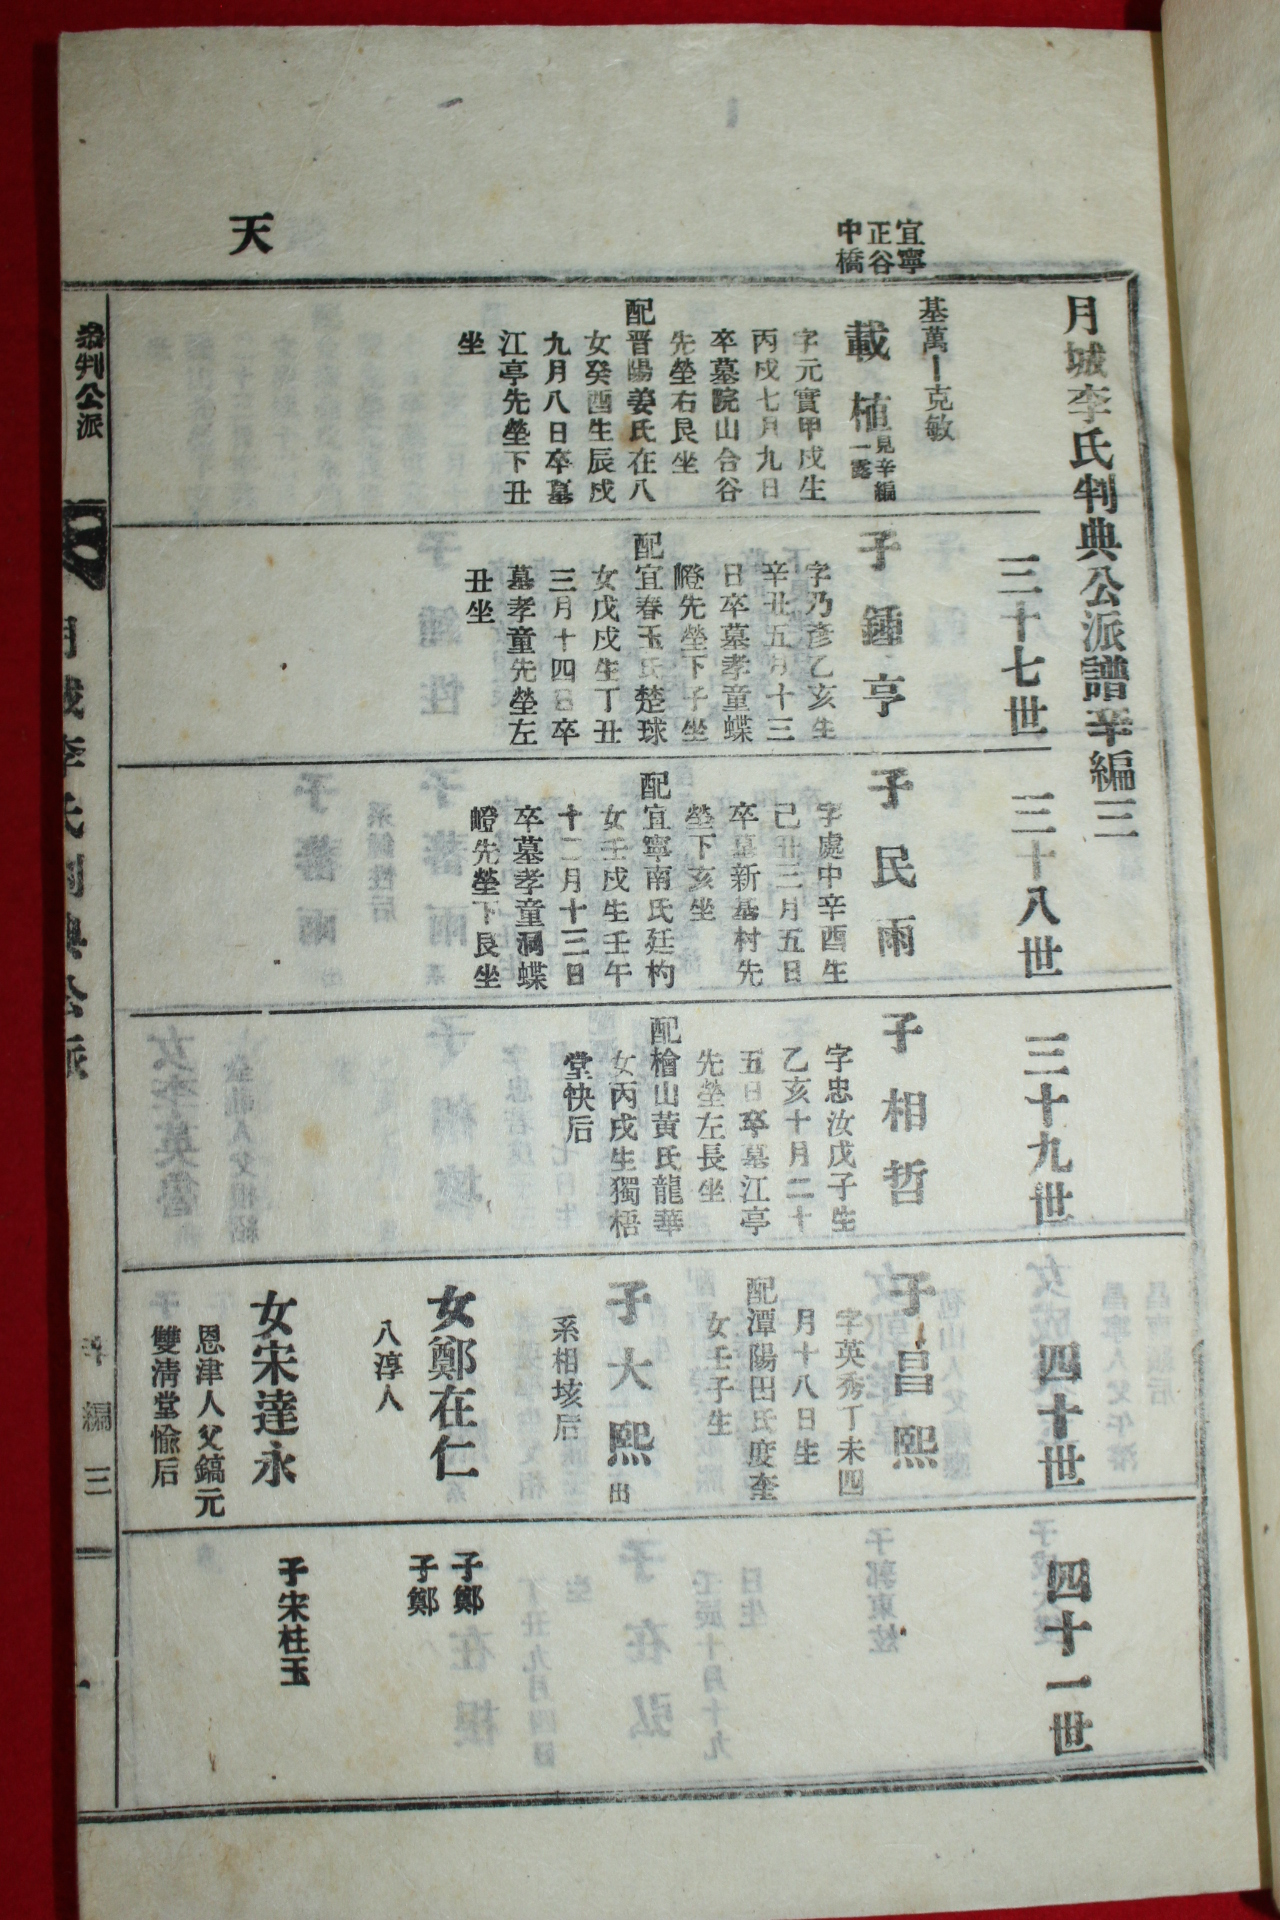 天
宜寧
正谷
中橋
月城李氏判典公派譜辛編三
三十七世
三十八世
三十九世
四十世
四十一世
基萬ー克敏
載植
見辛編
一露
字元實甲戌生
丙戌七月九日
卒墓院山合谷
先塋右艮坐
配晋陽姜氏在八
女癸酉生辰戌
九月八日卒墓
江亭先塋下丑
坐
子鍾亨
字乃彦乙亥生
辛丑五月十三
日卒墓孝童蝶
嶝先塋下子坐
配宜春玉氏楚球
女戊戌生丁丑
三月十四日卒
墓孝童先塋左
丑坐
子民雨
字處中辛酉生
己丑三月五日
卒墓新基村先
塋下亥坐
配宜寧南氏廷杓
女壬戌生壬午
十二月十三日
卒墓孝童洞蝶
嶝先塋下艮坐
子相哲
字忠汝戊子生
乙亥十月二十
五日卒墓江亭
先塋左長坐
配檜山黃氏龍華
女丙戌生獨梧
堂快后
子昌熙
字英秀丁未四
月十八日生
配潭陽田氏度奎
女壬子生
子大熙出
系相垓后
女鄭在仁
八淳人
女宋達永
恩津人父鎬元
雙淸堂愉后
子鄭
子鄭
子宋柱玉
判公派
月城李氏判典公派
辛編
三